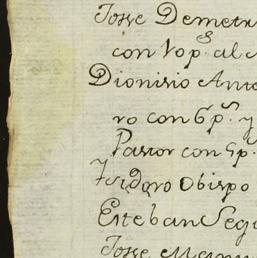 Josse Demetr
con 10 p.s al
Dionisio Ante
ro con 6 p.s y
Pastor con 5 p.
Ysidoro Obispo
Esteban Segu
Josse Manu